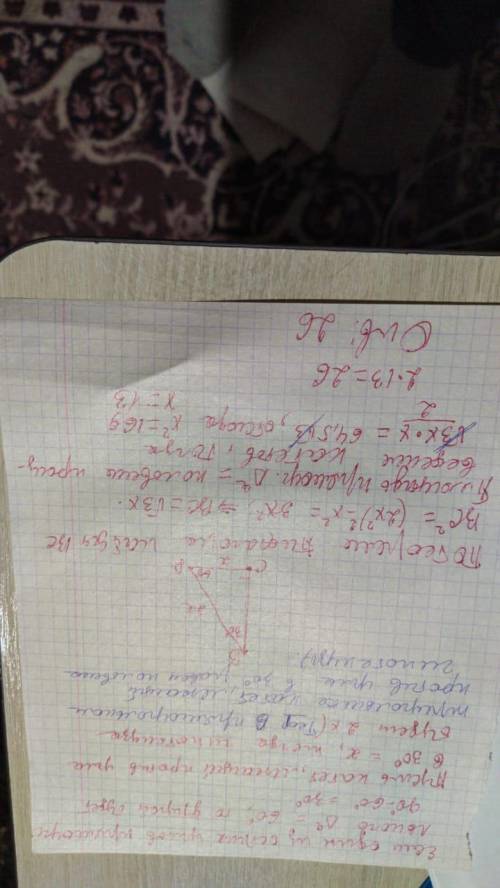 Если один из острых углов прямоуг.
лонов Δ⁰ = 60°, то другой будет
90°-60° = 30°
Пусть катет, лежащий против угла
в 30° = x, тогда гипотенуза
будет 2x (Теор. В прямоугольном
треугольнике катет, лежащий
против угла в 30° равен половине
гипотенузы)
B
30°
2x
60°
A
x
C
По теореме Пифагора, найдем BC
BC² = (2x)² - x² = 3x² ⇒ BC = √3x.
Площадь прямоуг. Δ⁰ = половине произ-
ведения катетов, тогда
√3x·x / 2 = 84,5√3, отсюда x² = 169
x = 13
2·13 = 26
Отв: 26